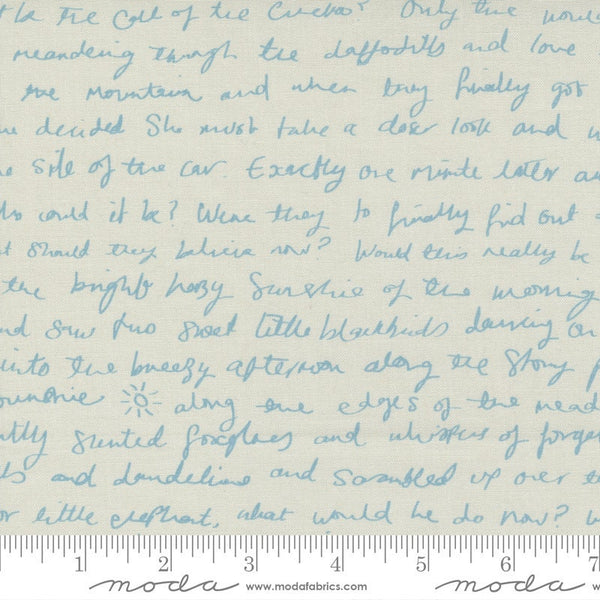 the Call of the Cuckoo? Only time would
meandering through the daffodills and love
the mountain and when they finally got
decided She must take a closer look and
side of the car. Exactly one minute later
could it be? Were they to finally find out
Should they believe now? Would this really be
the bright hazy Sunshine of the morning
saw two sweet little blackbirds dancing on
into the breezy afternoon along the Stony
along the edges of the
scented foxgloves and whispers of
and dandelions and Scrambled up over
little elephant, what would he do now?
1 2 3 4 5 6 7
moda www.modafabrics.com moda www.modafabrics.com